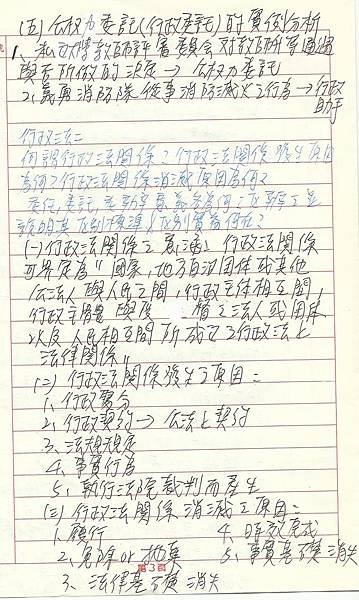 (五)公權力委託(行政委託)的實例分析
1. 私立學校教師評審委員會對教師
所做的決定→公權力委託
2. 義勇消防隊從事消防滅火之行為→行政
助手
行政法:
何謂行政法關係?行政法關係發生原因
為何?行政法關係消滅原因為何?
委任、委託
說明其區別標準&區別實益何在?
(一)行政法關係之意涵:行政法關係
可界定為"國家,地方自治团体或其他
公法人與人民之間,行政主体相互間,
行政主體與 之法人或团体
以及人民相互間所成立之行政法上
法律關係"
(二)行政法關係發生之原因:
1、行政處分
2、行政契約→公法上契約
3、法規規定
4、事實行為
5、執行法院裁判而產生
(三)行政法關係消滅之原因:
1、履行 4、時效完成
2、免除or拋棄 5、事實基礎消失
第3頁
3、法律基礎消失